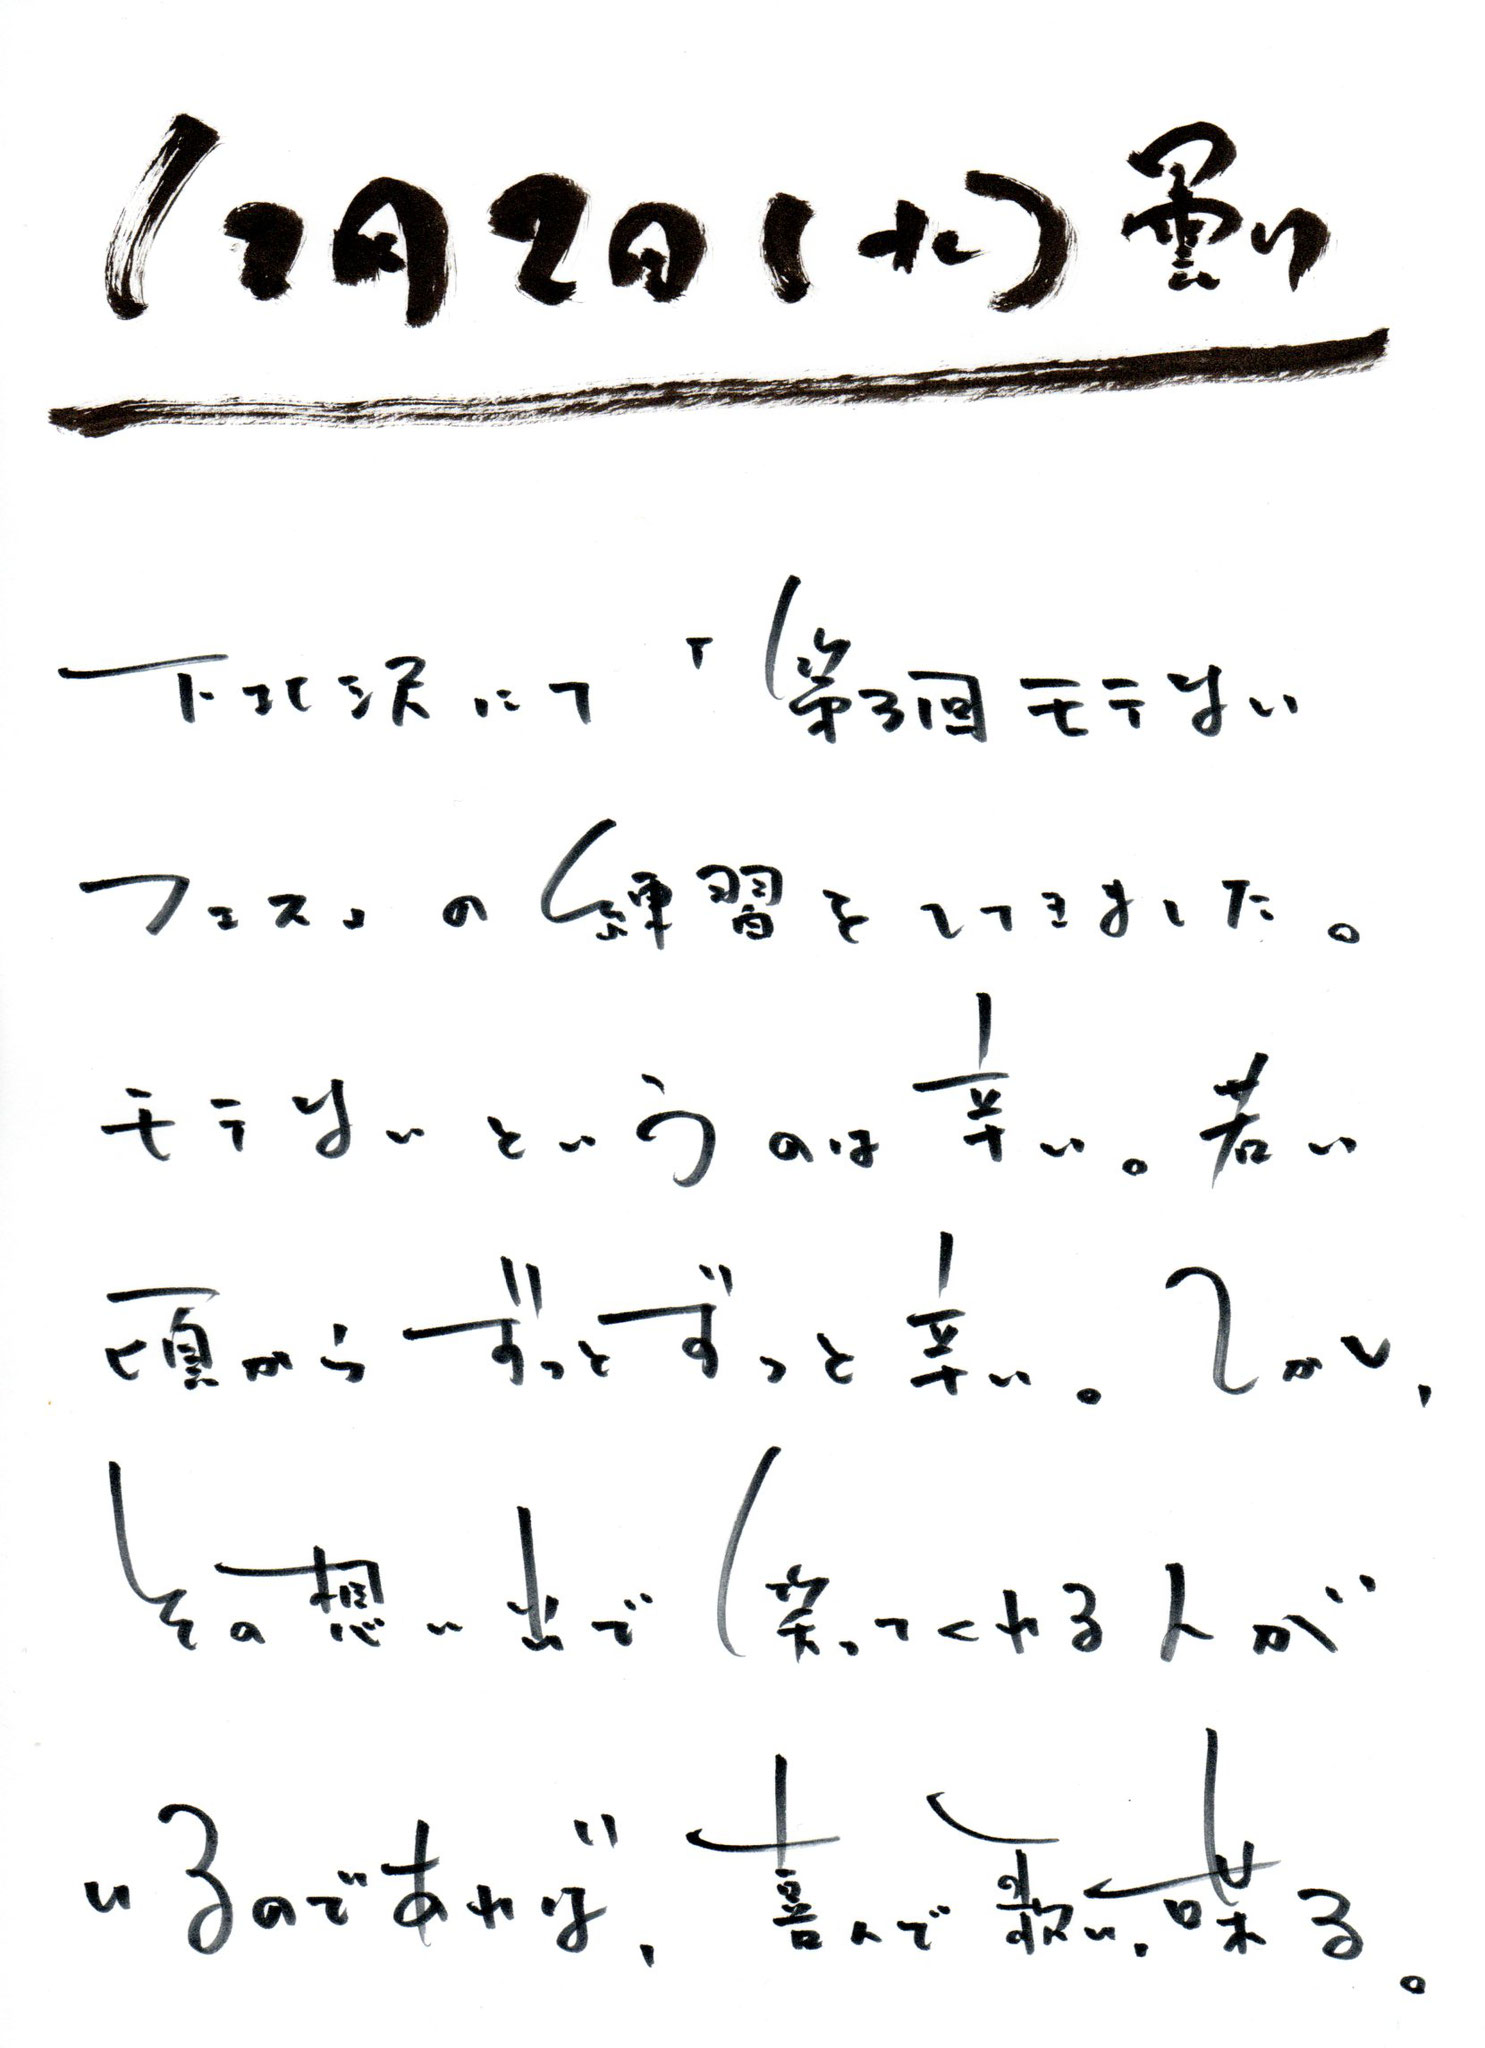 12月2日(水)曇り
下北沢にて「第3回モテない
フェス」の練習をしてきました。
モテないというのは辛い。若い
頃からずっとずっと辛い。しかし、
その想い出で笑ってくれる人が
いるのであれば、喜んで歌い、喋る。